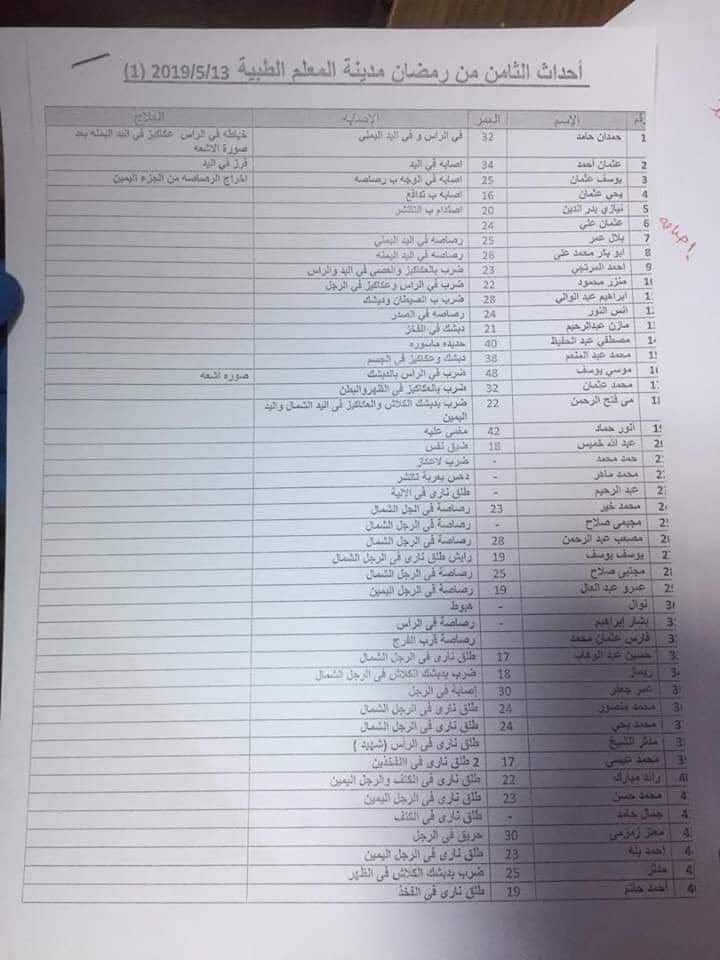 أحداث الثامن من رمضان مدينة المعلم الطبية 2019/5/13 (1)
رقم الإسم العمر الإصابه العلاج
1 حمدان حامد 32 في الراس و في اليد اليمنى خياطه في الراس عكاكيز في اليد اليمنه بعد صورة الاشعه
2 عثمان احمد 34 اصابه في اليد فرز في اليد
3 يوسف عثمان 25 اصابه في الوجه ب رصاصه اخراج الرصاصه من الجزء اليمين
4 يحي عثمان 16 اصابه ب تدافع
5 نيازي بدر الدين 20 اصتدام ب التاتشر
6 عثمان علي 24
7 بلال عمر 25 رصاصه في اليد اليملي
8 ابو بكر محمد على 26 رصاصه في اليد اليمنه
9 احمد المرتجي 23 ضرب بالعكاكيز والعصي في اليد والراس
1 منزر محمود 22 ضرب في الراس وعكاكيز في الرجل
1 ابراهيم عبد الوالي 28 ضرب ب الصيطان ودبشك
1 انس النور 24 رصاصه في الصدر
1 مازن عبدالرحيم 21 دبشك في الفخز
1 مصطفي عبد الحفيظ 40 حديده ماسوره
1 محمد عبد المنعم 38 دبشك وعكاكيز في الجسم
1 موسي يوسف 48 ضرب في الراس بالدبشك صوره اشعه
1 محمد عثمان 32 ضرب بالعكاكيز في الظهروالبطن
1 مى فتح الرحمن 22 ضرب بدبشك الكلاش والعكاكيز فى اليد الشمال واليد اليمين
1 أنور حماد 42 مغمى عليه
2 عبد الله خميس 18 ضيق نفس
2 حمد محمد - ضرب لاعتاز
2 محمد ماهر - دهس بعربة تاتشر
2 عبد الرحيم - طلق نارى فى الإلية
2 محمد خير 23 رصاصة فى الجل الشمال
2 مجيمى صلاح - رصاصة فى الرجل الشمال
2 مصعب عبد الرحمن 28 رصاصة فى الرجل الشمال
2 يوسف يوسف 19 رايش طلق نارى فى الرجل الشمال
2 مجتبى صلاح 25 رصاصة فى الرجل الشمال
2 عمرو عبد العال 19 رصاصة فى الرجل اليمين
3 نوال - هبوط
3 بشار إبراهيم - رصاصة فى الرأس
3 فارس عثمان محمد رصاصة قرب الفرج
3 حسين عبد الوهاب 17 طلق نارى فى الرجل الشمال
3 ريماز 18 ضرب بدبشك الكلاش فى الرجل الشمال
3 عمر جعفر 30 إصابة فى الرجل
3 محمد منصور 24 طلق نارى فى الرجل الشمال
3 محمد يحي 24 طلق نارى فى الرجل الشمال
3 مدثر الشيخ طلق نارى فى الرأس (شهيد )
3 محمد عيسى 17 2 طلق نارى فى االفخذين
4 رائد مبارك 22 طلق نارى فى الكتف والرجل اليمين
4 محمد حسن 23 طلق نارى فى الرجل اليمين
4 جمال حامد - طلق نارى فى الكتف
4 معتز زمزمى 30 حريق فى الرجل
4 احمد بله 23 طلق نارى فى الرجل اليمين
4 مدثر 25 ضرب بدبشك الكلاش فى الظهر
4 أحمد حاتم 19 طلق نارى فى الفخذ